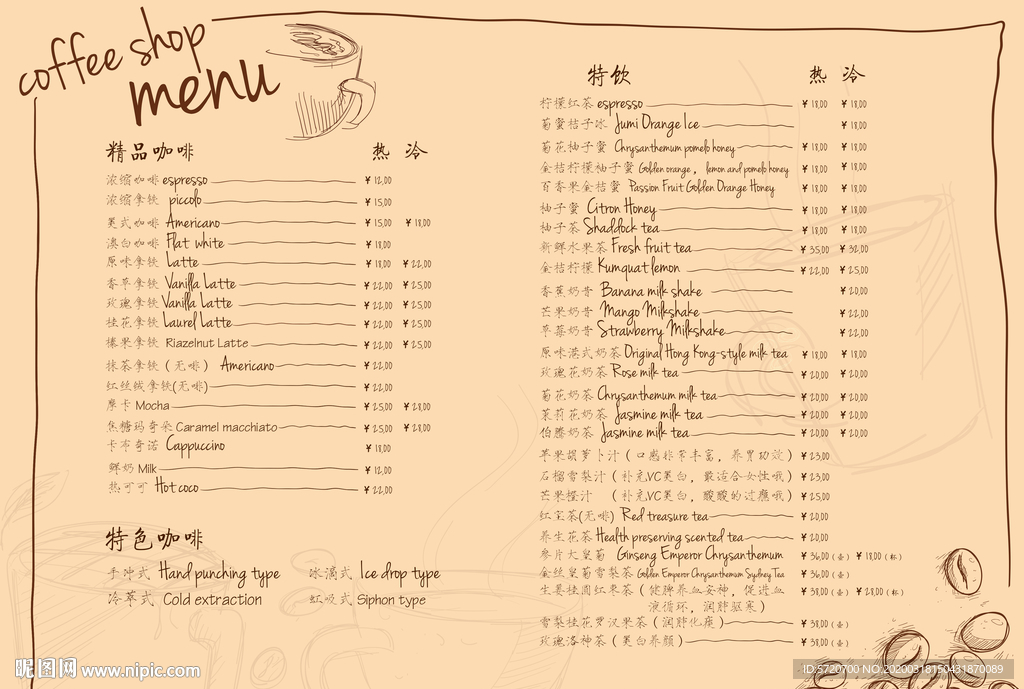 coffee shop
menu
精品咖啡 热 冷
浓缩咖啡 espresso ¥ 12.00
浓缩拿铁 piccolo ¥ 15.00
美式咖啡 Americano ¥ 15.00 ¥ 18.00
澳白咖啡 Flat white ¥ 18.00
原味拿铁 Latte ¥ 18.00 ¥ 22.00
香草拿铁 Vanilla Latte ¥ 22.00 ¥ 25.00
玫瑰拿铁 Vanilla Latte ¥ 22.00 ¥ 25.00
桂花拿铁 Laurel Latte ¥ 22.00 ¥ 25.00
榛果拿铁 Riazelnut Latte ¥ 22.00 ¥ 25.00
抹茶拿铁（无啡） Americano ¥ 22.00
红丝绒拿铁(无啡) ¥ 22.00
摩卡 Mocha ¥ 25.00 ¥ 28.00
焦糖玛奇朵 Caramel macchiato ¥ 25.00 ¥ 28.00
卡布奇诺 Cappuccino ¥ 18.00
鲜奶 Milk ¥ 12.00
热可可 Hot coco ¥ 22.00
特色咖啡
手冲式 Hand punching type 冰滴式 Ice drop type
冷萃式 Cold extraction 虹吸式 Siphon type
特饮 热 冷
柠檬红茶 espresso ¥ 18.00 ¥ 18.00
菊蜜桔子冰 Jumi Orange Ice ¥ 18.00
菊花柚子蜜 Chrysanthemum pomelo honey ¥ 18.00 ¥ 18.00
金桔柠檬柚子蜜 Golden orange， lemon and pomelo honey ¥ 18.00 ¥ 18.00
百香果金桔蜜 Passion Fruit Golden Orange Honey ¥ 18.00 ¥ 18.00
柚子蜜 Citron Honey ¥ 18.00 ¥ 18.00
柚子茶 Shaddock tea ¥ 18.00 ¥ 18.00
新鲜水果茶 Fresh fruit tea ¥ 35.00 ¥ 32.00
金桔柠檬 Kumquat lemon ¥ 22.00 ¥ 25.00
香蕉奶昔 Banana milk shake ¥ 20.00
芒果奶昔 Mango Milkshake ¥ 22.00
草莓奶昔 Strawberry Milkshake ¥ 22.00
原味港式奶茶 Original Hong Kong-style milk tea ¥ 18.00 ¥ 18.00
玫瑰花奶茶 Rose milk tea ¥ 20.00 ¥ 20.00
菊花奶茶 Chrysanthemum milk tea ¥ 20.00 ¥ 20.00
茉莉花奶茶 Jasmine milk tea ¥ 20.00 ¥ 20.00
伯爵奶茶 Jasmine milk tea ¥ 20.00 ¥ 20.00
苹果胡萝卜汁（口感非常丰富，养胃功效） ¥ 23.00
石榴雪梨汁（补充VC美白，最适合女性哦） ¥ 23.00
芒果橙汁 （补充VC美白，酸酸的过瘾哦） ¥ 25.00
红宝茶(无啡) Red treasure tea ¥ 20.00
养生花茶 Health preserving scented tea ¥ 20.00
参片大皇菊 Ginseng Emperor Chrysanthemum ¥ 36.00（壶） ¥ 18.00（杯）
金丝皇菊雪梨茶 Golden Emperor Chrysanthemum Sydney Tea ¥ 36.00（壶）
生姜桂圆红枣茶（健脾养血安神，促进血 ¥ 38.00（壶） ¥ 28.00（杯）
液循环，润肺驱寒）
雪梨桂花罗汉果茶（润肺化痰） ¥ 38.00（壶）
玫瑰洛神茶（美白养颜） ¥ 38.00（壶）
昵图网 www.nipic.com
ID:5720700 NO:20200318150431870089